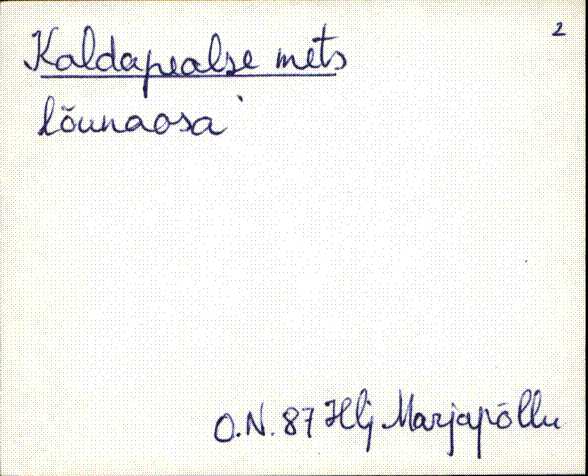 2
Kaldapealse mets
lõunaosa
O.N. 87 Hlj Marjapõllu